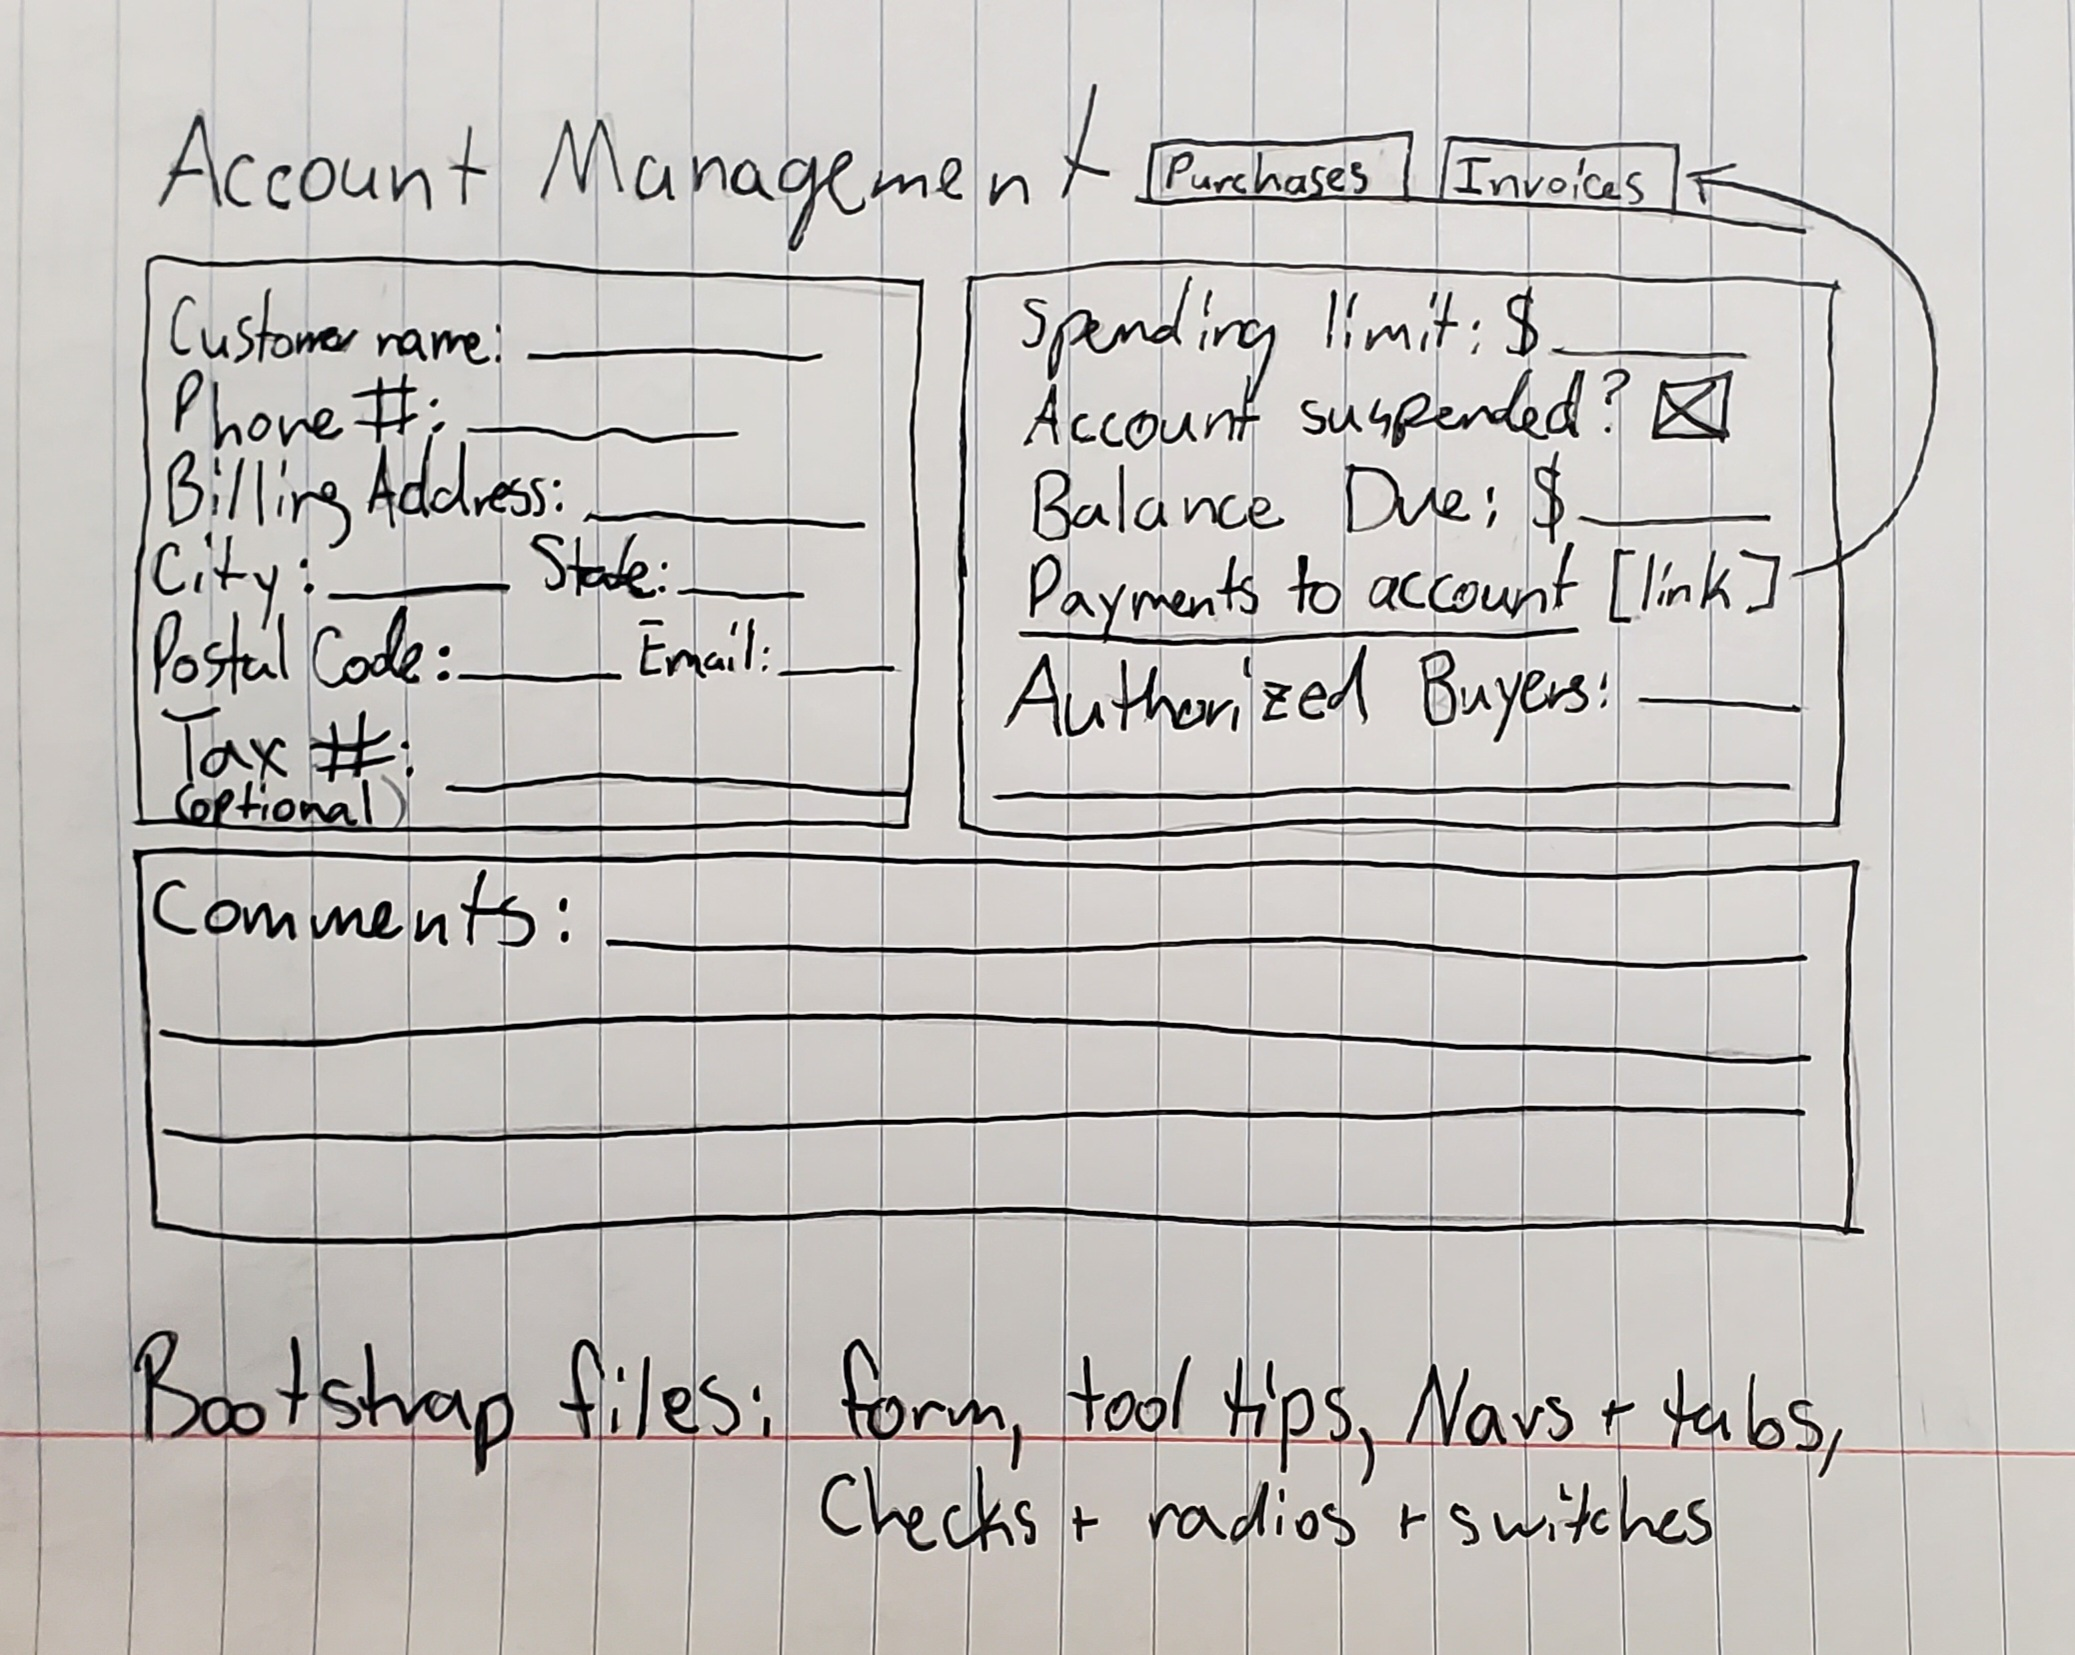 Account Management Purchases Invoices
Customer name:
Phone #:
Billing Address:
City: State:
Postal Code: Email:
Tax #:
(optional)
Spending limit: $
Account suspended?
Balance Due: $
Payments to account [link]
Authorized Buyers:
Comments:
Bootstrap files: form, tool tips, Navs + tabs,
Checks + radios + switches